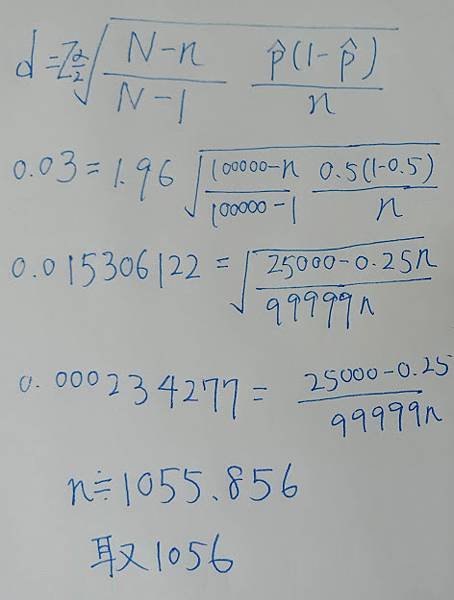 d=Z α/2 √((N-n)/(N-1) p̂(1-p̂)/n)
0.03=1.96 √((100000-n)/(100000-1) 0.5(1-0.5)/n)
0.015306122=√((25000-0.25n)/(99999n))
0.000234277=(25000-0.25)/(99999n)
n≒1055.856
取1056